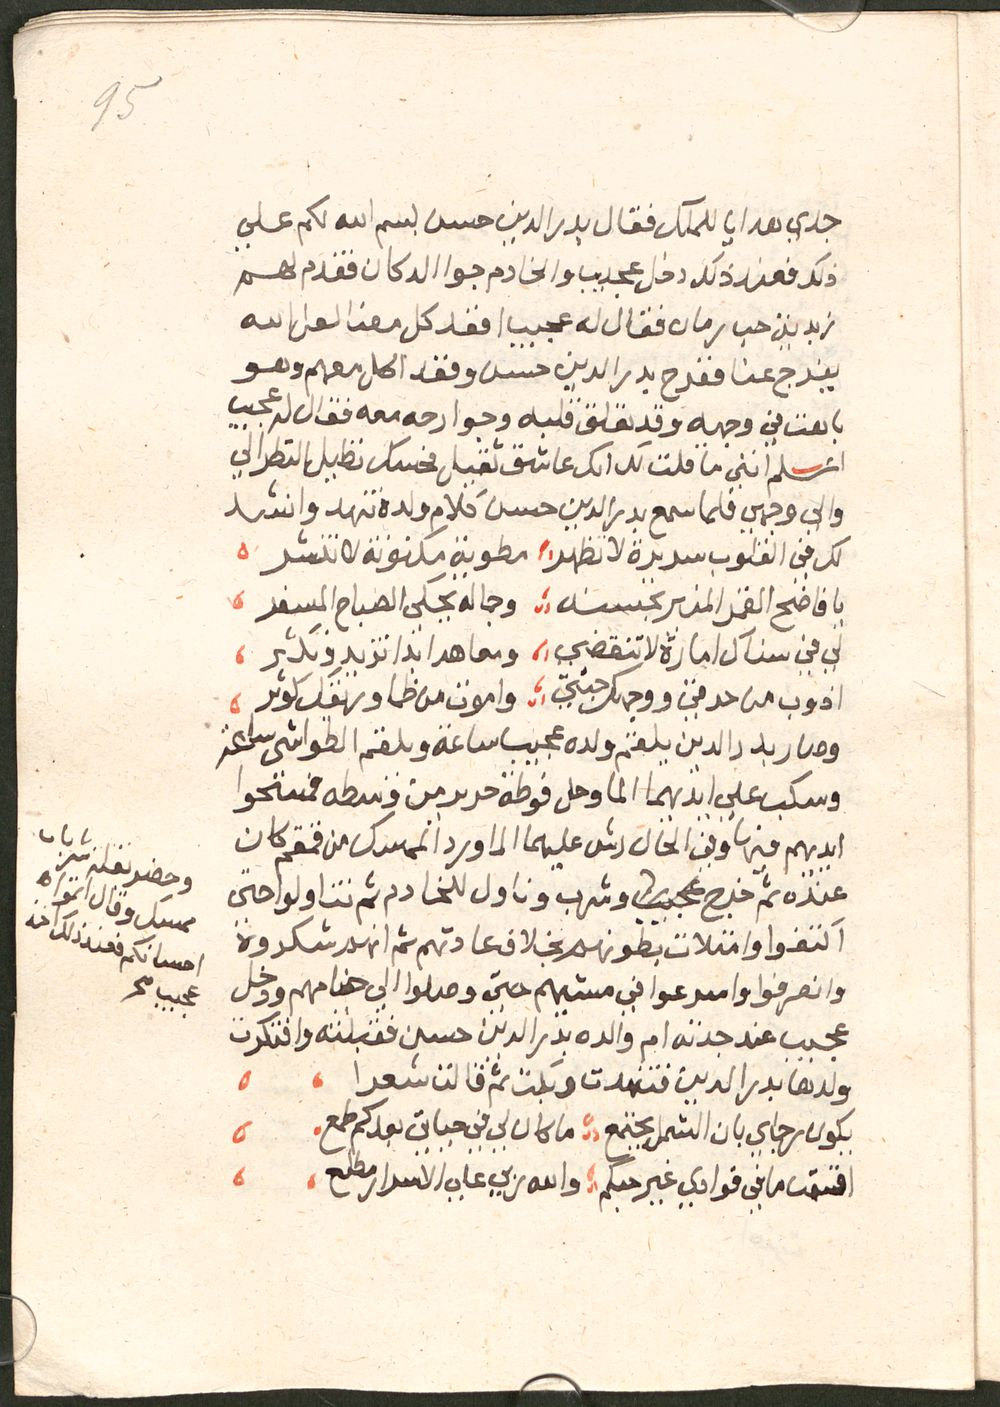 95
جدي بهدايا للملك فقال بدر الدين حسن بسم الله لكم علي
ذلك فعند ذلك دخل عجيب والخادم جوا الدكان فقدم لهم
زبدية حب رمان فقال له عجيب اقعد كل معنا لعل الله
يفرج عنا ففرح بدر الدين حسن وقعد اكل معهم وهو
باهت في وجهه وقد تعلق قلبه وجوارحه معه فقال له عجيب
انني ما قلت لك انك عاشق ثقيل تطيل النظر الي
والي وجهي فلما سمع بدر الدين حسن كلام ولده تنهد وانشد
لك في القلوب سريرة لا تظهر مطوية مكنونة لا تنشر
يا فاضح القمر المنير بحسنه وجماله يحكي الصباح المسفر
لي في سناك امارة لا تنقضي ومعاهد ابدا تزيد وتكثر
اذوب من حرقي ووجهك جنتي واموت من ظما وريقك كوثر
وصار بدر الدين يلقم ولده عجيب ساعة ويلقم الطواشي ساعة
وسكب علي ايديهما الما وحل فوطة حرير من وسطه فمسحوا
ايديهم فيها وفي الحال رش عليهما الماورد الممسك من قمقم كان
عنده ثم خرج عجيب وشرب وناول للخادم ثم تناولوا حتي
اكتفوا وامتلات بطونهم بخلاف عادتهم ثم انهم شكروه
وانصرفوا واسرعوا في مشيهم حتي وصلوا الي خيامهم ودخل
عجيب عند جدته ام والده بدر الدين حسن فقبلته وافتكرت
ولدها بدر الدين فتنهدت وبكت ثم قالت شعرا
يكون رجاي بان الشمل يجتمع ما كان لي في حياتي بعدكم طمع
اقسمت ما في فوادي غير حبكم والله ربي علي الاسرار مطلع
وحضر بقلة شربات
ممسك وقال اتموا
احسانكم فعند ذلك اخذ
عجيب صح